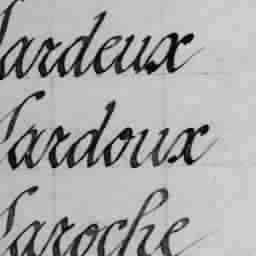 ardeux
ardoux
aroche